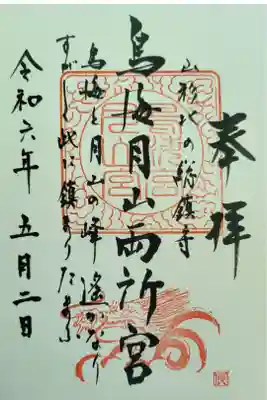 奉拝
山形北の総鎮守
鳥海月山両所宮
鳥海と月山の峰遙かなり
すがしく此に鎮まりたまふ
令和六年五月二日